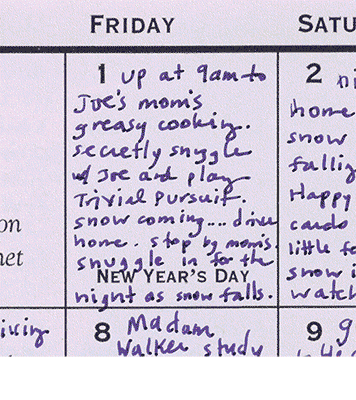 FRIDAY
SATU
1 up at 9am to
Joe's mom's
greasy cooking.
secretly snuggle
w/ Joe and play
Trivial Pursuit.
snow coming... drive
home. stop by mom's.
snuggle in for the
NEW YEAR'S DAY
night as snow falls.
8 Madam
Walker study
2 ni
home
snow
fallin
Happy
cards
little fe
snow i
watch
9 g
on
net